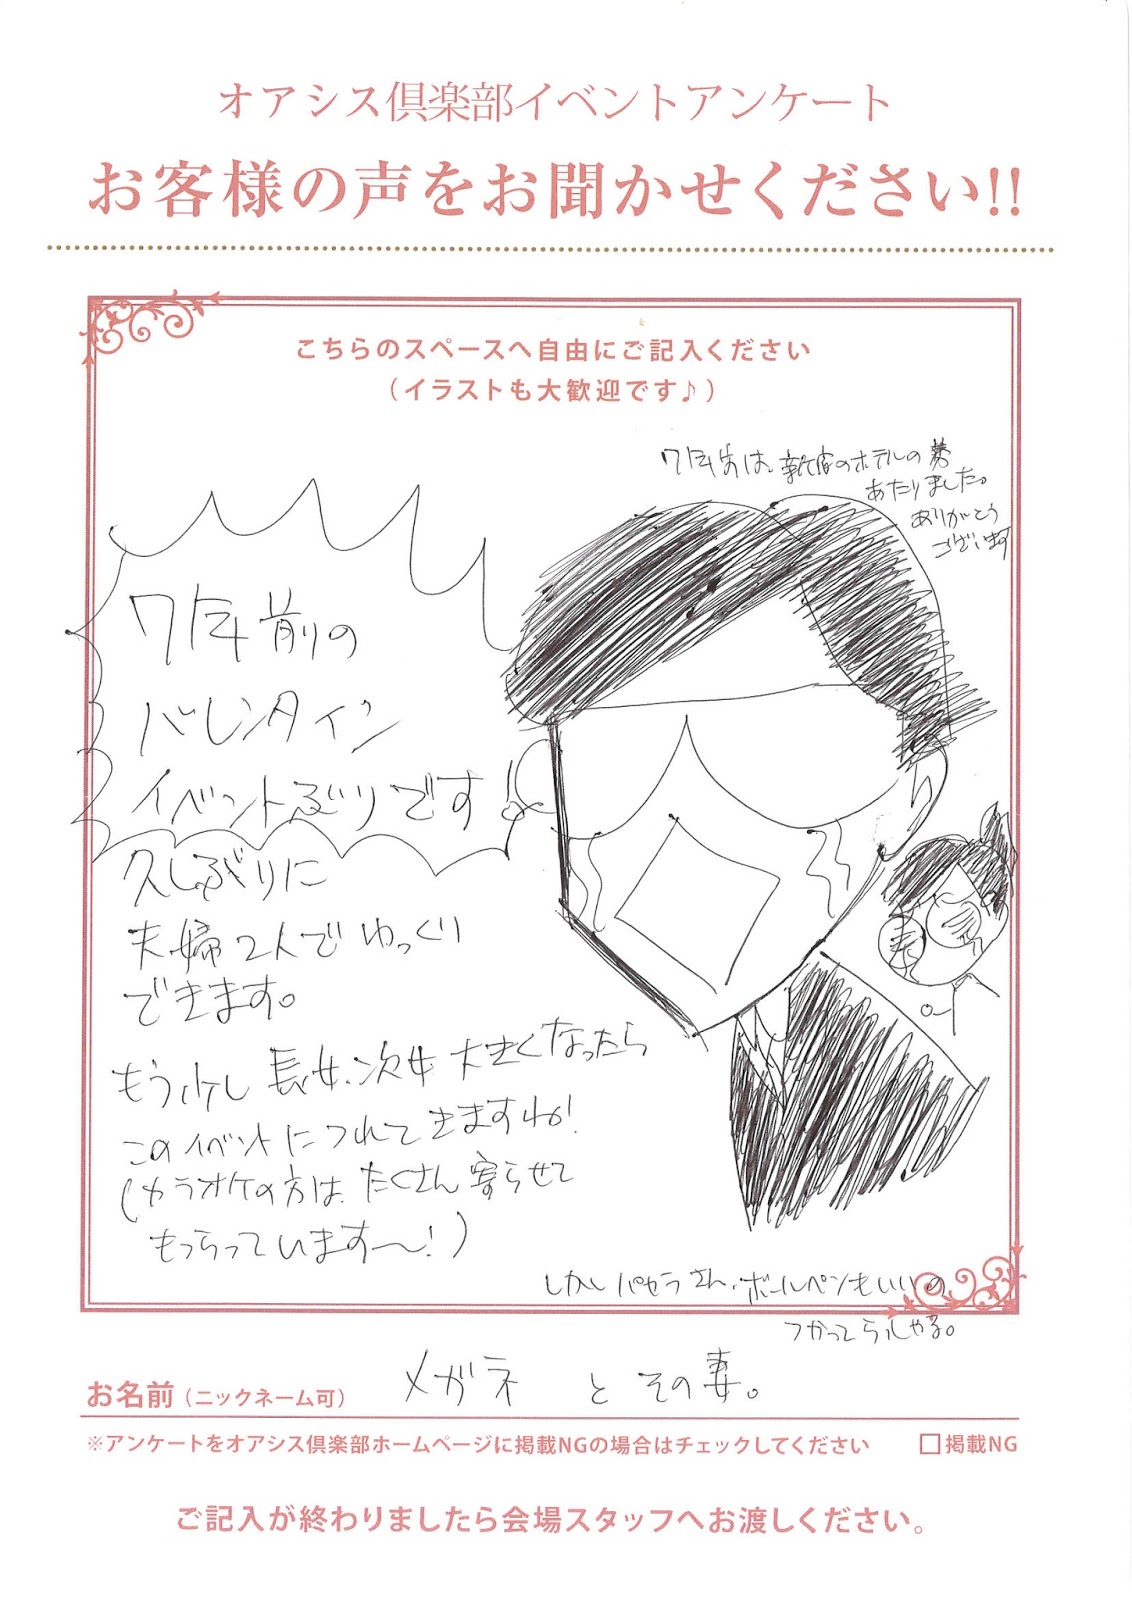 オアシス倶楽部イベントアンケート
お客様の声をお聞かせください!!
こちらのスペースへ自由にご記入ください
(イラストも大歓迎です♪)
7年前は、新宿のホテルの券
あたりました。
ありがとう
ございます
7年前の
バレンタイン
イベントぶりです!
久しぶりに
夫婦2人でゆっくり
できます。
もう少し長女、次女大きくなったら
このイベントにつれてきますね!
(カラオケの方は、たくさん寄らせて
もらっています〜!)
妻
しかしパセラさん、ボールペンもいいの
つかってらしゃる。
お名前(ニックネーム可) メガネ と その妻。
※アンケートをオアシス倶楽部ホームページに掲載NGの場合はチェックしてください □掲載NG
ご記入が終わりましたら会場スタッフへお渡しください。